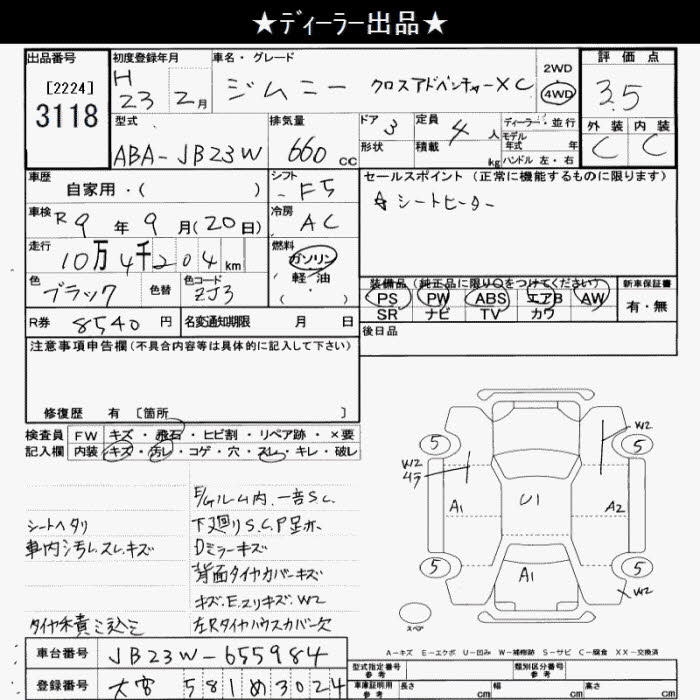 ★ディーラー出品★
出品番号 初度登録年月 車名・グレード 2WD 評価点
[2224] H 23 2月 ジムニー クロスアドベンチャーXC 4WD 3.5
3118
型式 排気量 ドア 定員 ディーラー・並行 外装 内装
ABA-JB23W 660cc 3 4人 モデル年式 年 C C
形状 積載 kg ハンドル 左・右
車歴 シフト セールスポイント(正常に機能するものに限ります)
自家用・( ) F5 シートヒーター
車検 R9年9月(20日) 冷房 AC
走行 10万4千204km 燃料 ガソリン 軽・油 ( ・ )
装備品(純正品に限り○をつけてください) 新車保証書
色 ブラック 色替 色コード ZJ3 PS PW ABS エアB AW 有・無
SR ナビ TV カワ
R券 8540円 名変通知期限 月 日 後日品
注意事項申告欄(不具合内容等は具体的に記入して下さい)
修復歴 有 [箇所 ]
検査員 FW キズ・飛石・ヒビ割・リペア跡・×要
記入欄 内装 キズ・汚レ・コゲ・穴・スレ・キレ・破レ
E/Gルーム内、一部S.C.
シートヘタリ 下廻りS.C.P
車内汚レ.スレ.キズ Dミラーキズ
背面タイヤカバーキズ
キズ.E.スリキズ.W2
タイヤ積ミ込ミ 左Rタイヤハウスカバー欠
W2
5 5
W2
A1 U1 A2
5 A1 5
W2
スペア
A-キズ E-エクボ U-凹み W-補修跡 S-サビ C-腐食 XX-交換済
車台番号 JB23W-655984 型式指定番号 参考 類別区分番号 参考
登録番号 大宮 581 め 3024 車庫証明用 参考 長さ cm 幅 cm 高さ cm